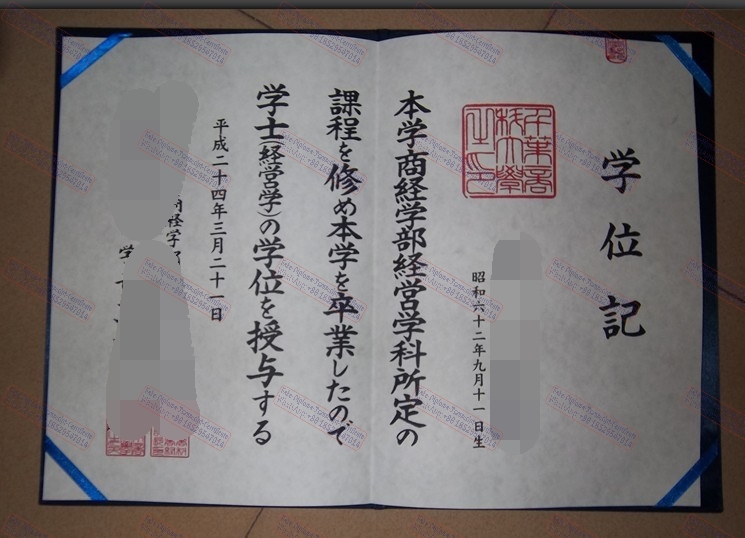 学位記
昭和六十二年九月十一日生
千葉商
科大學
之印
本学商経学部経営学科所定の
課程を修め本学を卒業したので
学士（経営学）の学位を授与する
平成二十四年三月二十一日
商経学
学